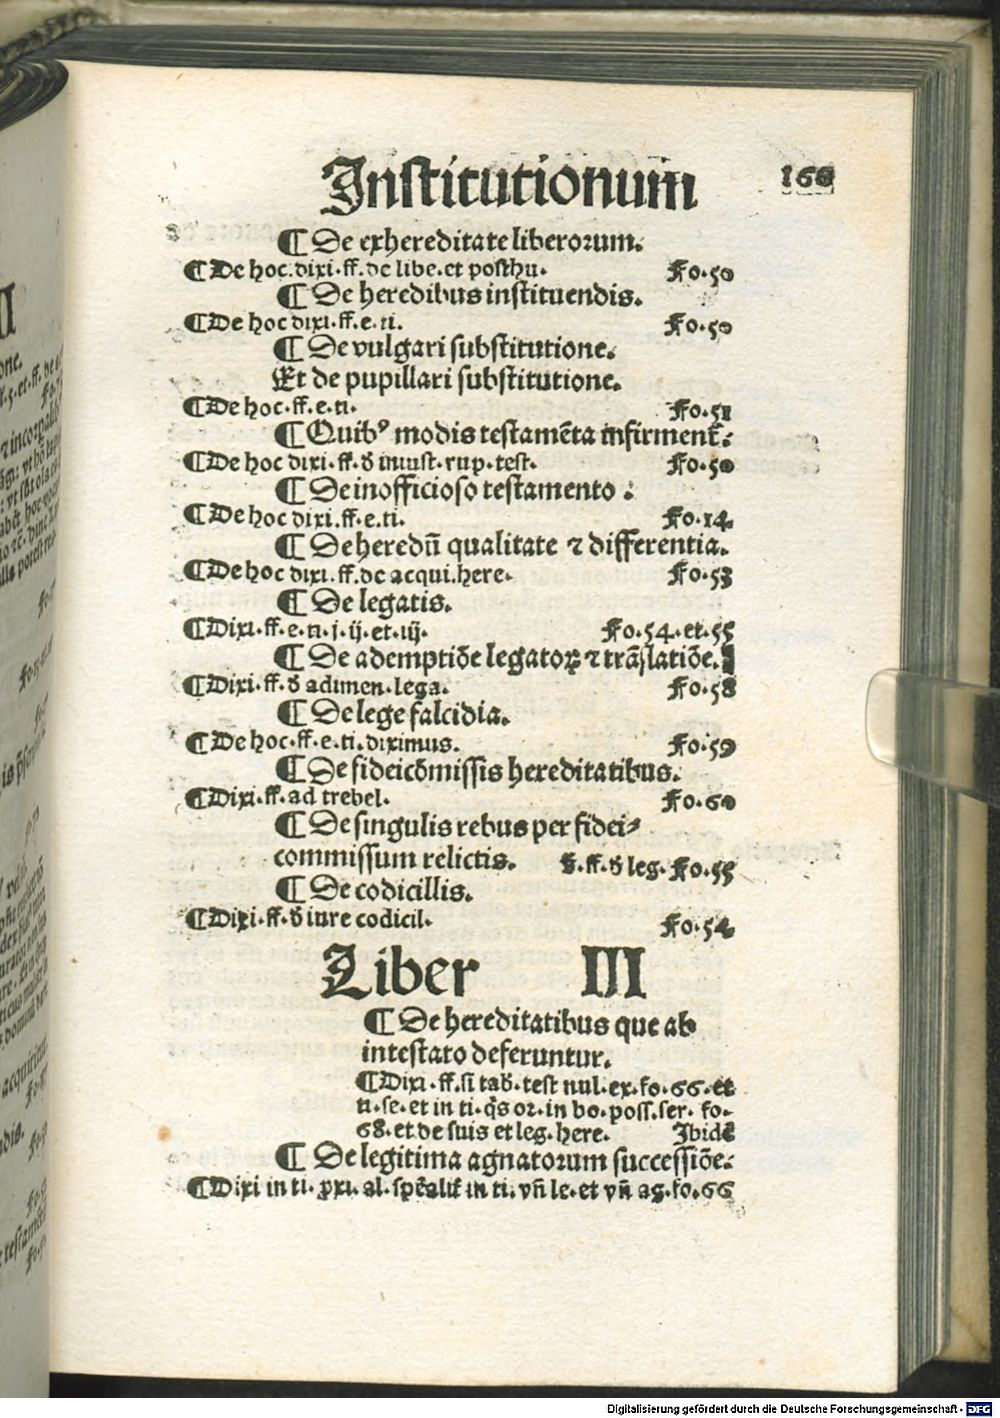 Institutionum 166
¶ De exhereditate liberorum.
¶ De hoc. dixi. ff. de libe. et posthu. Fo. 50
¶ De heredibus instituendis.
¶ De hoc dixi. ff. e. ti. Fo. 50
¶ De vulgari substitutione.
Et de pupillari substitutione.
¶ De hoc. ff. e. ti. Fo. 51
¶ Quibꝰ modis testamēta infirment̄.
¶ De hoc dixi. ff. ꝺ̄ iniust. rup. test. Fo. 50
¶ De inofficioso testamento.
¶ De hoc dixi. ff. e. ti. Fo. 14.
¶ De heredū qualitate ⁊ differentia.
¶ De hoc dixi. ff. de acqui. here. Fo. 53
¶ De legatis.
¶ Dixi. ff. e. ti. j. ij. et. iij. Fo. 54. et. 55
¶ De ademptiōe legatoꝝ ⁊ trāslatiōe.
¶ Dixi. ff. ꝺ̄ adimen. lega. Fo. 58
¶ De lege falcidia.
¶ De hoc. ff. e. ti. diximus. Fo. 59
¶ De fideicōmissis hereditatibus.
¶ Dixi. ff. ad trebel. Fo. 60
¶ De singulis rebus per fidei⸗
commissum relictis. §. ff. ꝺ̄ leg. Fo. 55
¶ De codicillis.
¶ Dixi. ff. ꝺ̄ iure codicil. Fo. 54.
Liber III
¶ De hereditatibus que ab
intestato deferuntur.
¶ Dixi. ff. si tab. test nul. ex. fo. 66. et
ti. se. et in ti. q̄s or. in bo. poss. ser. fo.
68. et de suis et leg. here. Ibidē
¶ De legitima agnatorum successiōe.
¶ Dixi in ti. ꝓxi. al. in ti. vn̄ le. et vn̄ ag. fo. 66
Digitalisierung gefördert durch die Deutsche Forschungsgemeinschaft - DFG